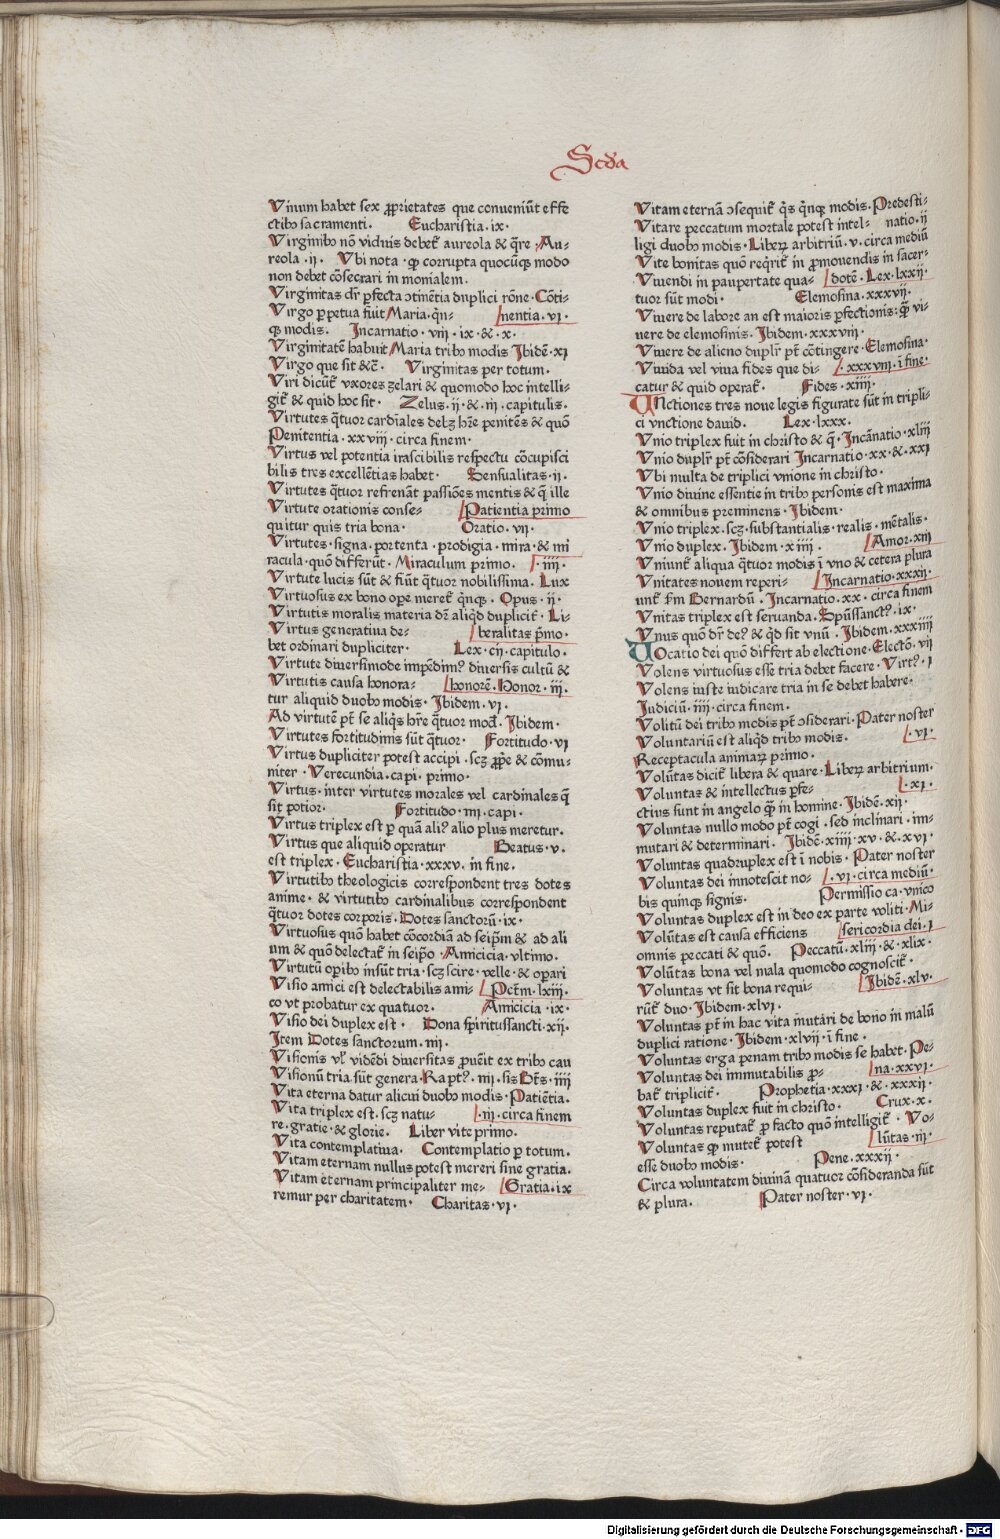 Scďa
Vinum habet sex ꝓprietates que conueniūt effe
ctibꝫ sacramenti. Eucharistia.ix.
Virginibꝫ nō viduis debet᷑ aureola & q̄re Au-
reola.ij. Vbi nota.ꝙ corrupta quocūqꝫ modo
non debet cōsecrari in monialem.
Virginitas dr̄ ꝑfecta ↄtinētia duplici rōne.Cōti-
Virgo ꝑpetua fuit Maria.q̄n- [nentia.vj.
qꝫ modis. Incarnatio.viij.ix.&.x.
Virginitatē habuit Maria tribꝫ modis Ibidē.xj
Virgo que sit &c̄. Virginitas per totum.
Viri dicūt᷑ vxores zelari & quomodo hoc intelli-
git᷑ & quid hoc sit. Zelus.ij.&.iij.capitulis.
Virtutes q̄tuor cardiales debꝫ hr̄e penitēs & quō
Penitentia.xxviij.circa finem.
Virtus vel potentia irascibilis respectu cōcupisci
bilis tres excellētias habet. Sensualitas.ij.
Virtutes q̄tuor refrenāt passiōes mentis & q̄ ille
Virtute orationis conse- [Patientia primo
quitur quis tria bona. Oratio.vij.
Virtutes.signa.portenta.prodigia.mira.& mi
racula.quō differūt. Miraculum primo. [.iiij.
Virtute lucis sūt & fiūt q̄tuor nobilissima. Lux
Virtuosus ex bono oꝑe meret᷑ q̄nqꝫ. Opus.ij.
Virtutis moralis materia dr̄ aliqd̄ duplicit᷑. Li-
Virtus generatiua de- [beralitas pr̄mo.
bet ordinari dupliciter. Lex.cij.capitulo.
Virtute diuersimode impēdim⁹ diuersis cultū &
Virtutis causa honora- [honorē.Honor.iij.
tur aliquid duobꝫ modis.Ibidem.vj.
Ad virtutē pt̄ se aliq̄s hr̄e q̄tuor mod̄.Ibidem.
Virtutes fortitudinis sūt q̄tuor. Fortitudo.vj
Virtus dupliciter potest accipi.scꝫ ꝓpͥe & cōmu-
niter.Verecundia.capi.primo.
Virtus.inter virtutes morales vel cardinales q̄
sit potior. Fortitudo.iij.capi.
Virtus triplex est ꝑ quā ali⁹ alio plus meretur.
Virtus que aliquid operatur Beatus.v.
est triplex.Eucharistia.xxxv.in fine.
Virtutibꝫ theologicis correspondent tres dotes
anime.& virtutibꝫ cardinalibus correspondent
q̄tuor dotes corporis.Dotes sanctorū.ix.
Virtuosus quō habet cōcordiā ad seip̄m & ad ali
um & quō delectat᷑ in seip̄o.Amicicia.vltimo.
Virtutū oꝑibꝫ insūt tria.scꝫ scire.velle.& opari
Visio amici est delectabilis ami- [Pctm̄.lxiij.
co vt probatur ex quatuor. Amicicia.ix.
Visio dei duplex est. Dona spiritussancti.xij.
Item Dotes sanctorum.iij.
Visionis vl̓ vidēdi diuersitas ꝓuēit ex tribꝫ cau
Visionū tria sūt genera.Rapt⁹.iij. [sis Bt̄s.iiij
Vita eterna datur alicui duobꝫ modis.Patiētia.
Vita triplex est.scꝫ natu- [.iij.circa finem
re.gratie.& glorie. Liber vite primo.
Vita contemplatiua. Contemplatio ꝑ totum.
Vitam eternam nullus potest mereri sine gratia.
Vitam eternam principaliter me- [Gratia.ix
remur per charitatem. Charitas.vj.
Vitam eternā ↄsequit᷑ q̄s q̄nqꝫ modis.Predesti-
Vitare peccatum mortale potest intel- natio.ij
ligi duobꝫ modis.Liberꝝ arbitriū.v.circa mediū
Vite bonitas quō reqͥrit᷑ in ꝓmouendis in sacer-
Viuendi in paupertate qua- [dotē.Lex.lxxij.
tuor sūt modi. Elemosina.xxxvij.
Viuere de labore an est maioris ꝑfectionis:ꝙ̄ vi-
uere de elemosinis.Ibidem.xxxviij.
Viuere de alieno duplr̄ pt̄ cōtingere.Elemosina.
Viuida vel viua fides que di- [.xxxviij.ī fine.
catur & quid operat᷑. Fides.xiiij.
Vnctiones tres noue legis figurate sūt in tripli-
ci vnctione dauid. Lex.lxxx.
Vnio triplex fuit in christo & q̄.Incānatio.xliij
Vnio duplr̄ pt̄ cōsiderari Incarnatio.xx.&.xxj
Vbi multa de triplici vnione in christo.
Vnio diuine essentie in tribꝫ personis est maxima
& omnibus preminens.Ibidem.
Vnio triplex.scꝫ.substantialis.realis.mētalis.
Vnio duplex.Ibidem.xiiij. [Amor.xiij
Vniunt᷑ aliqua q̄tuor modis ī vno & cetera plura
Vnitates nouem reperi- [Incarnatio.xxxij.
unt᷑ ẜm Bernardū.Incarnatio.xx.circa finem
Vnitas triplex est seruanda.Spūssanct⁹.ix.
Vnus quō dr̄ de⁹ & qd̄ sit vnū.Ibidem.xxxiiij
Vocatio dei quō differt ab electione.Electō.vij
Volens virtuosus esse tria debet facere.Virt⁹.j
Volens iuste iudicare tria in se debet habere.
Iudiciū.iiij.circa finem.
Volitū dei tribꝫ modis pt̄ ↄsiderari.Pater noster
Voluntariū est aliqd̄ tribꝫ modis. [.vj.
Receptacula animaꝝ primo.
Volūtas dicit᷑ libera & quare.Liberꝝ arbitrium.
Voluntas & intellectus ꝑfe- [.xj.
ctius sunt in angelo ꝙ̄ in homine.Ibidē.xij.
Voluntas nullo modo pt̄ cogi.sed inclinari.im-
mutari & determinari. Ibidē.xiiij.xv.&.xvj.
Voluntas quadruplex est ī nobis.Pater noster
Voluntas dei innotescit no- [.vj.circa mediū.
bis quinqꝫ signis. Permissio ca.vnico
Voluntas duplex est in deo ex parte voliti.Mi-
Volūtas est causa efficiens [sericordia dei.j
omnis peccati & quō. Peccatū.xliij.&.xlix.
Volūtas bona vel mala quomodo cognoscit᷑.
Voluntas vt sit bona requi- [Ibidē.xlv.
rūt᷑ duo.Ibidem.xlvj.
Voluntas pt̄ in hac vita mutari de bono in malū
duplici ratione.Ibidem.xlvij.ī fine.
Voluntas erga penam tribꝫ modis se habet.Pe-
Voluntas dei immutabilis ꝓ- [na.xxvj.
bat᷑ triplicit᷑. Prophetia.xxxj.&.xxxij.
Voluntas duplex fuit in christo. Crux.x.
Voluntas reputat᷑ ꝓ facto quō intelligit᷑. Vo-
Voluntas ꝙ mutet᷑ potest [lūtas.iij.
esse duobꝫ modis. Pene.xxxij.
Circa voluntatem diuinā quatuor cōsideranda sūt
& plura. Pater noster.vj.
Digitalisierung gefördert durch die Deutsche Forschungsgemeinschaft - DFG